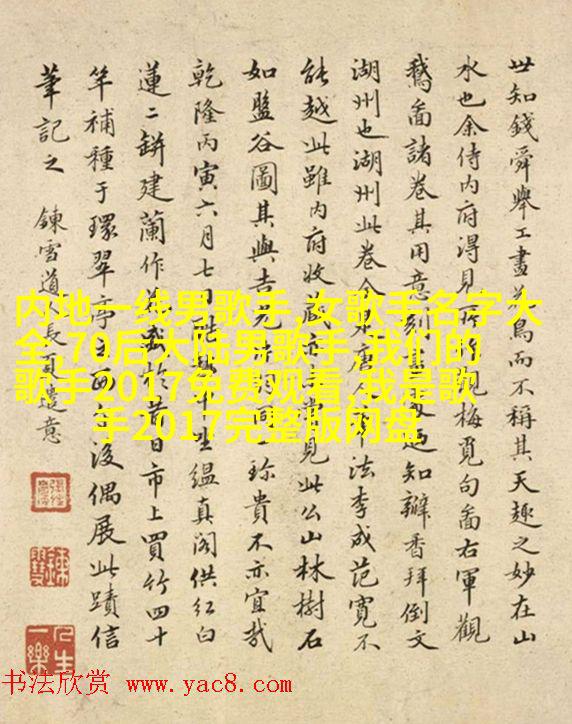 世知錢舜舉工畫花鳥而不稱其天趣之妙在山
水也余侍内府得見所見梅覓句啚右軍觀
鵝啚諸卷其用意刻知瓣香拜倒文
湖州也湖州此卷全唐法李成范寬不
能越此雖内府收藏見此公山林樹石
如盤谷圖其與吉光珍貴不亦宜哉
乾隆丙寅六月七日生緼真閣供紅白
蓮二缾建蘭作於昔日市上買竹四十
竿補種于環翠亭西後偶展此蹟信
筆記之 鍊雪道長夏遣意
人生一樂
内地一线男歌手,女歌手名字大
全,70后大陆男歌手,我们的
歌手2017免费观看,我是歌
手2017完整版网盘
书法欣赏 www.yac8.com